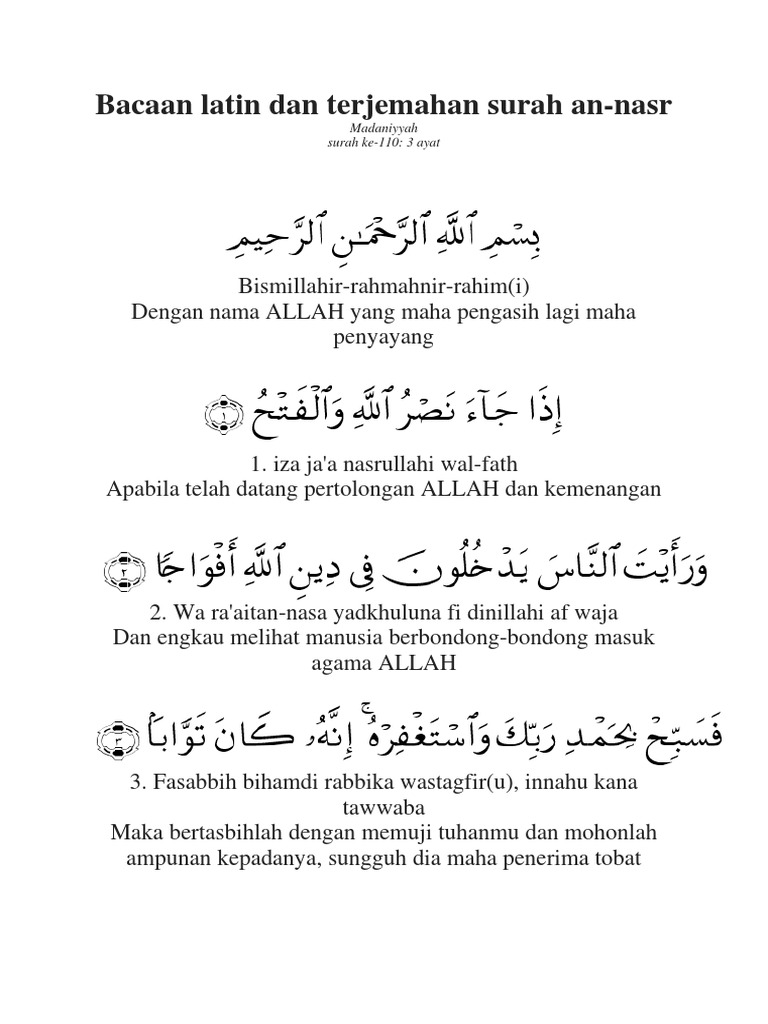 Bacaan latin dan terjemahan surah an-nasr
Madaniyyah
surah ke-110: 3 ayat
بِسْمِ ٱللَّهِ ٱلرَّحْمَـٰنِ ٱلرَّحِيمِ
Bismillahir-rahmahnir-rahim(i)
Dengan nama ALLAH yang maha pengasih lagi maha
penyayang
إِذَا جَآءَ نَصْرُ ٱللَّهِ وَٱلْفَتْحُ ١
1. iza ja'a nasrullahi wal-fath
Apabila telah datang pertolongan ALLAH dan kemenangan
وَرَأَيْتَ ٱلنَّاسَ يَدْخُلُونَ فِى دِينِ ٱللَّهِ أَفْوَاجًا ٢
2. Wa ra'aitan-nasa yadkhuluna fi dinillahi af waja
Dan engkau melihat manusia berbondong-bondong masuk
agama ALLAH
فَسَبِّحْ بِحَمْدِ رَبِّكَ وَٱسْتَغْفِرْهُ ۚ إِنَّهُۥ كَانَ تَوَّابًۢا ٣
3. Fasabbih bihamdi rabbika wastagfir(u), innahu kana
tawwaba
Maka bertasbihlah dengan memuji tuhanmu dan mohonlah
ampunan kepadanya, sungguh dia maha penerima tobat